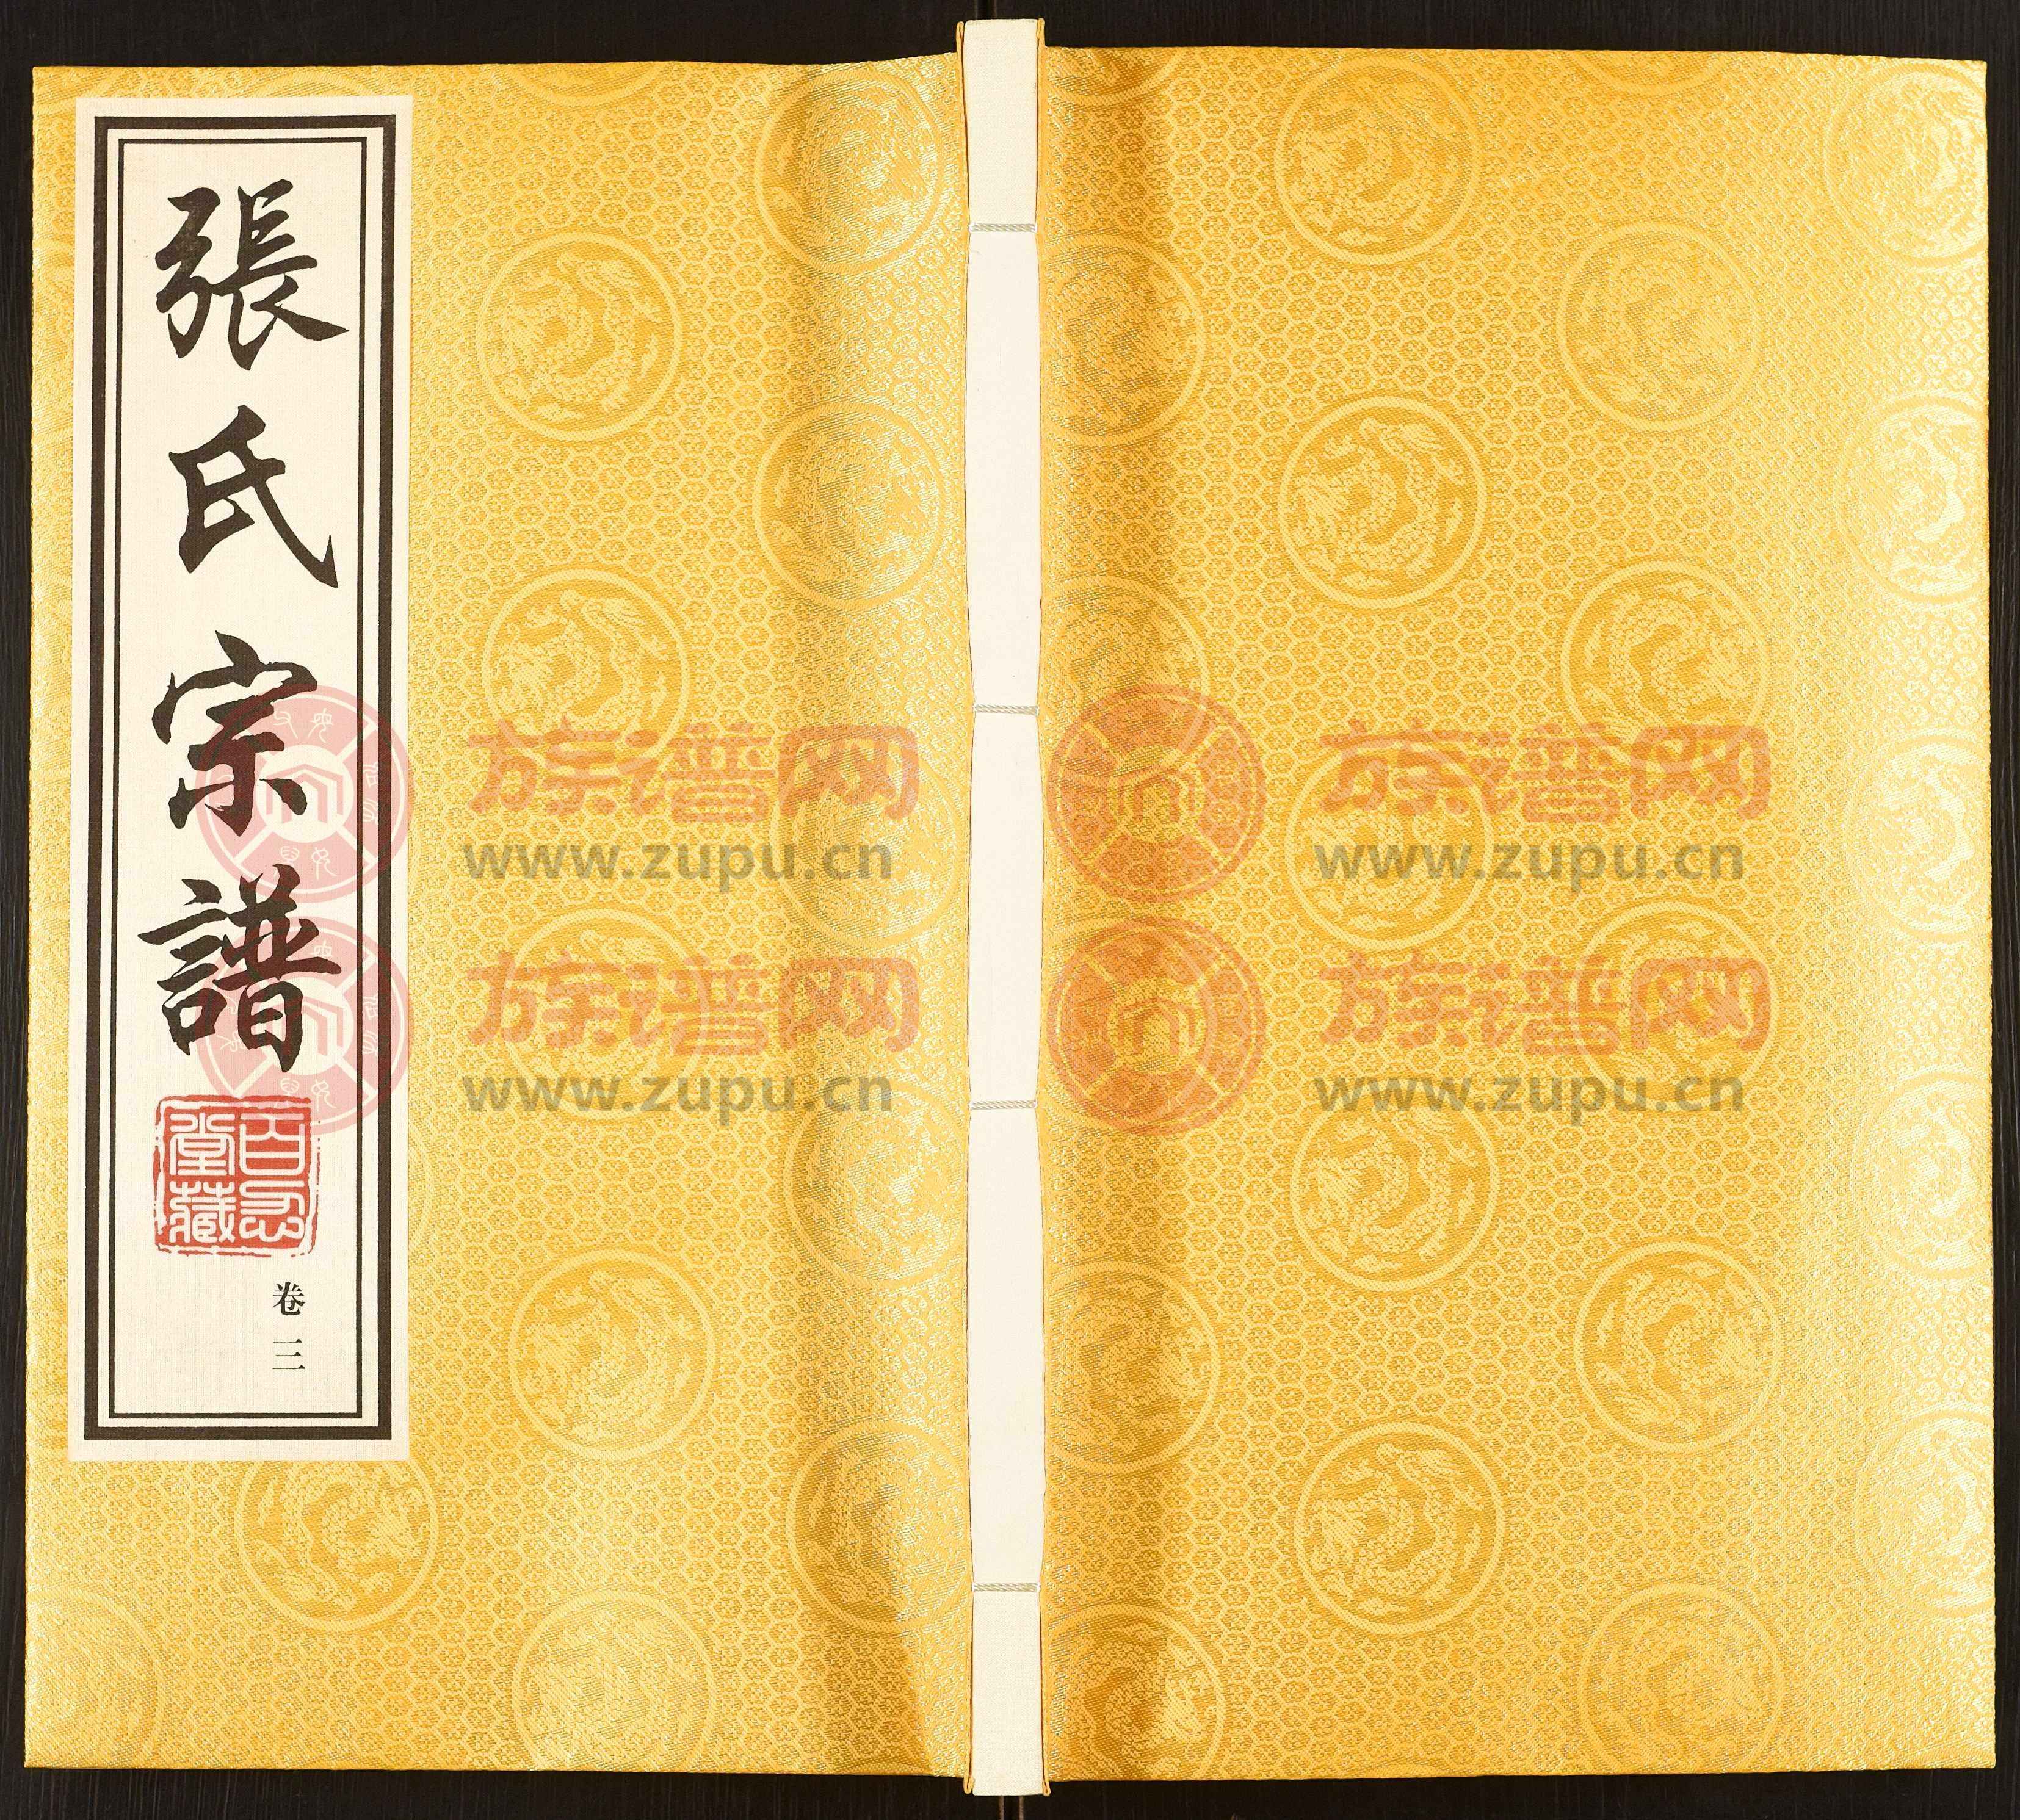 張氏宗譜
百忍
堂藏
卷三
族谱网
www.zupu.cn
族谱网
www.zupu.cn
族谱网
www.zupu.cn
族谱网
www.zupu.cn